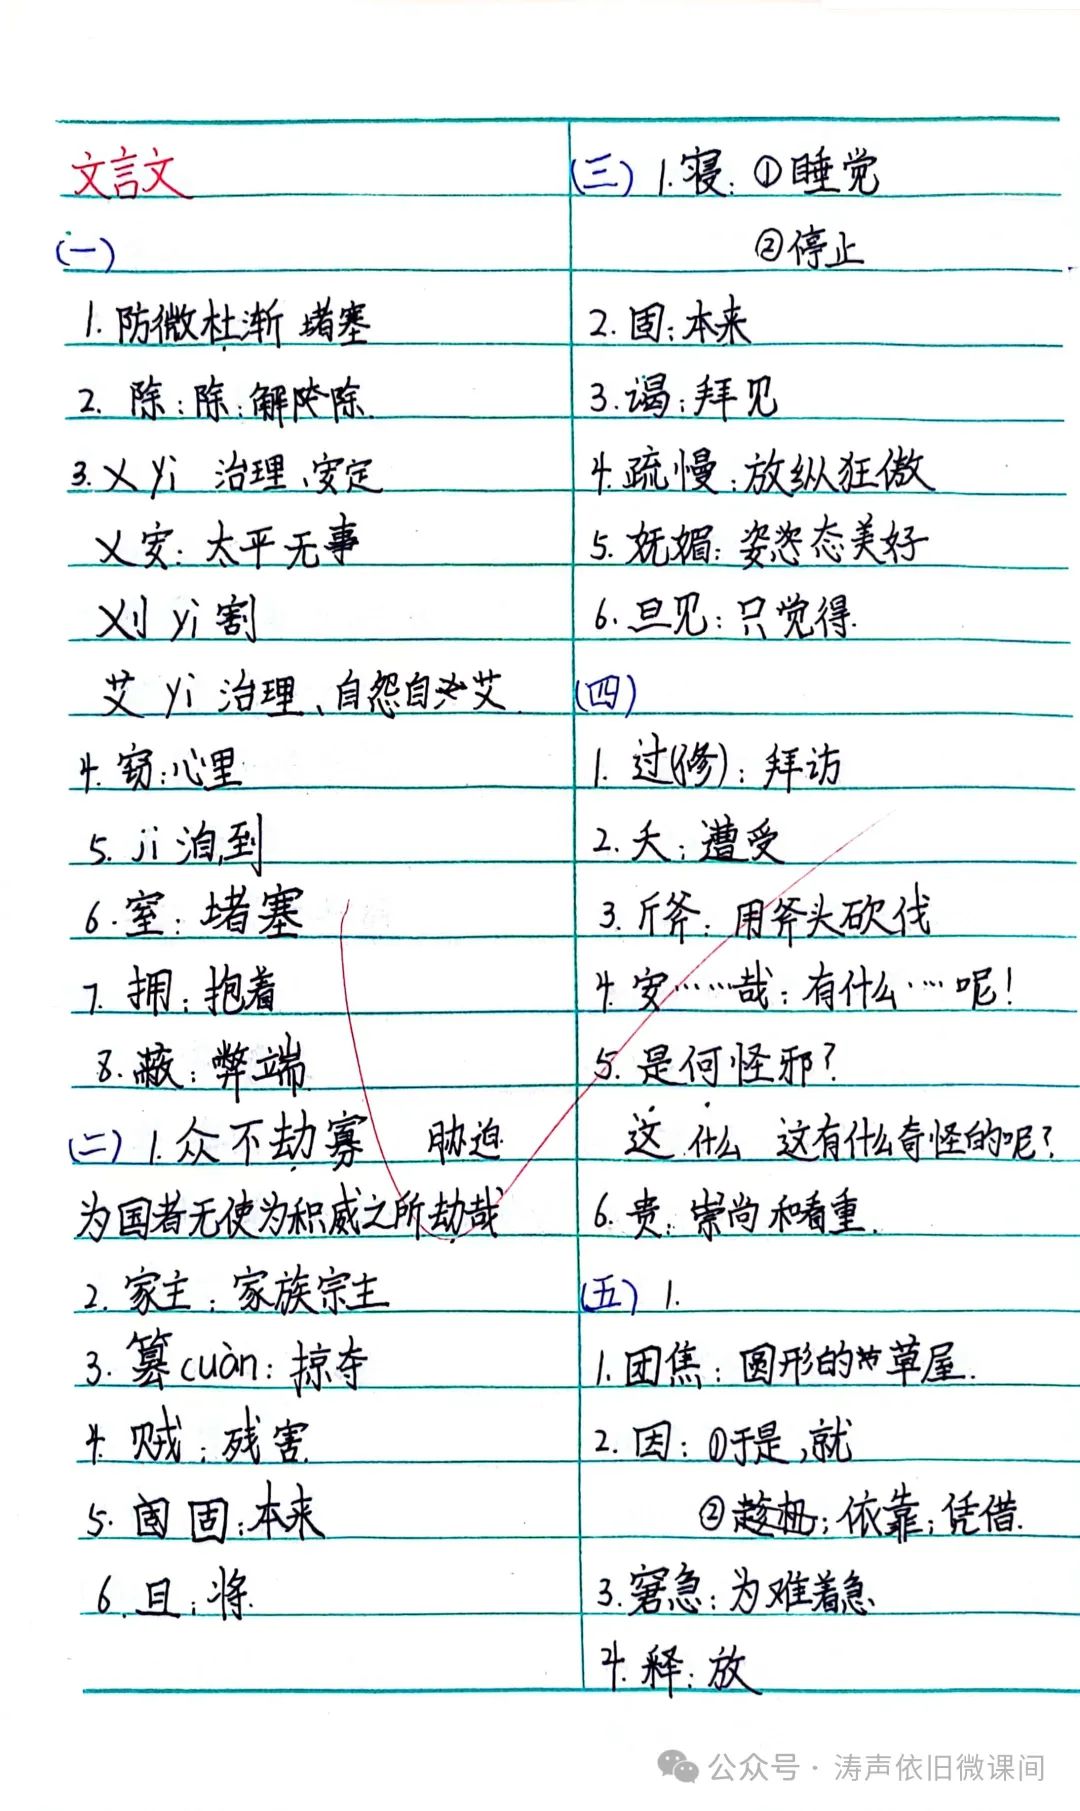 文言文
(一)
1. 防微杜渐 堵塞
2. 除:除:解除
3. 乂 yì 治理、安定
乂安:太平无事
刈 yì 割
艾 yì 治理、自怨自艾.
4. 窃:心里
5. jì 洎,到
6. 窒:堵塞
7. 拥:抱着
8. 蔽:弊端
(二) 1. 众不劫寡 胁迫
为国者无使为积威之所劫哉
2. 家主:家族宗主
3. 篡cuàn:掠夺
4. 贼:残害
5. 固:本来
6. 且:将.
(三) 1. 寝:①睡觉
②停止
2. 固:本来
3. 谒:拜见
4. 疏慢:放纵狂傲
5. 妩媚:姿态美好
6. 旦见:只觉得.
(四)
1. 过(修):拜访
2. 夭:遭受
3. 斤斧:用斧头砍伐
4. 安……哉:有什么……呢!
5. 是何怪邪?
这 什么 这有什么奇怪的呢?
6. 贵:崇尚和看重.
(五) 1.
1. 团焦:圆形的草屋.
2. 因:①于是,就
②趁机;依靠;凭借.
3. 窘急:为难着急
4. 释:放
公众号·涛声依旧微课间